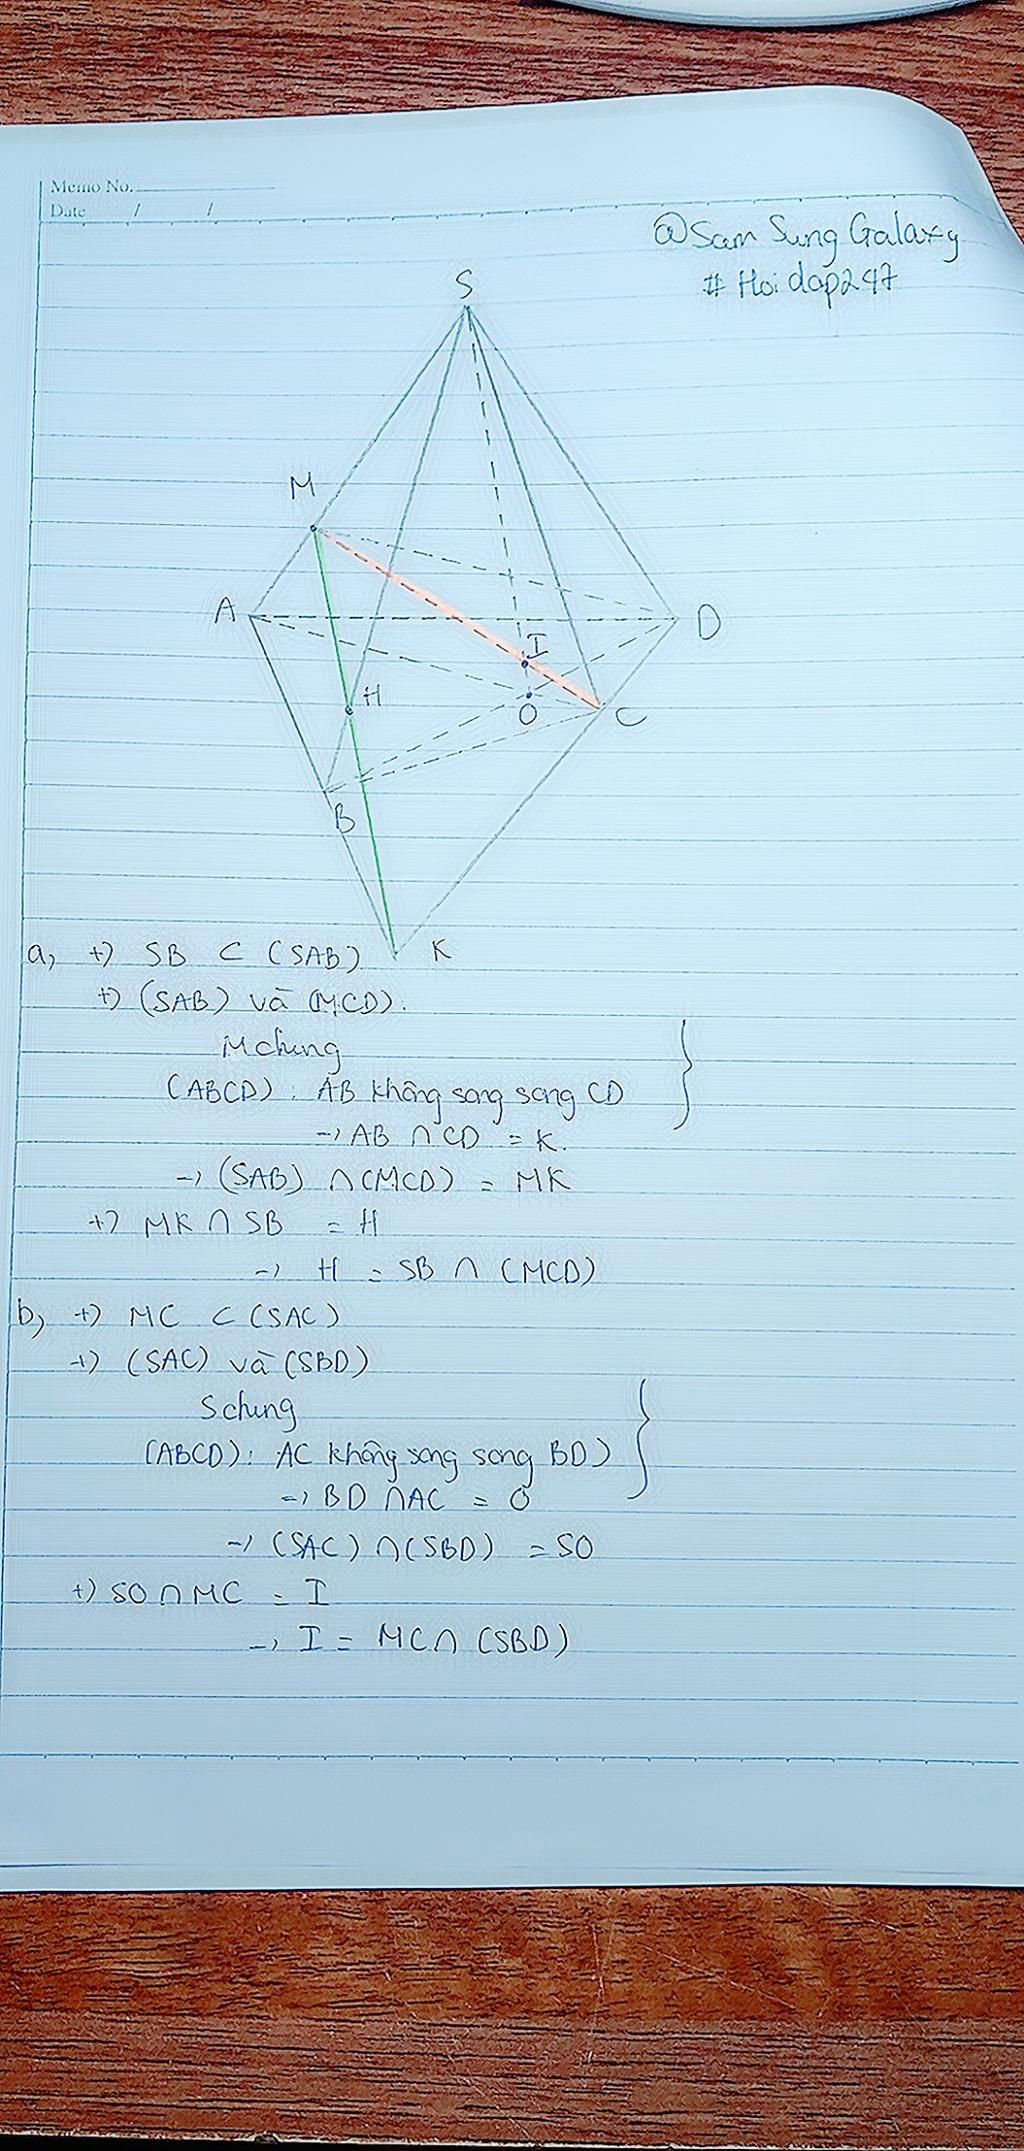 Memo No.
Date / /
@Sam Sung Galaxy
# Hoidap247
S
M
A
D
I
H
O
C
B
K
a, +) SB ⊂ (SAB)
+) (SAB) và (MCD).
M chung
(ABCD): AB không song song CD
→ AB ∩ CD = K.
→ (SAB) ∩ (MCD) = MK
+) MK ∩ SB = H
→ H = SB ∩ (MCD)
b, +) MC ⊂ (SAC)
+) (SAC) và (SBD)
S chung
(ABCD): AC không song song BD)
→ BD ∩ AC = O
→ (SAC) ∩ (SBD) = SO
+) SO ∩ MC = I
→ I = MC ∩ (SBD)